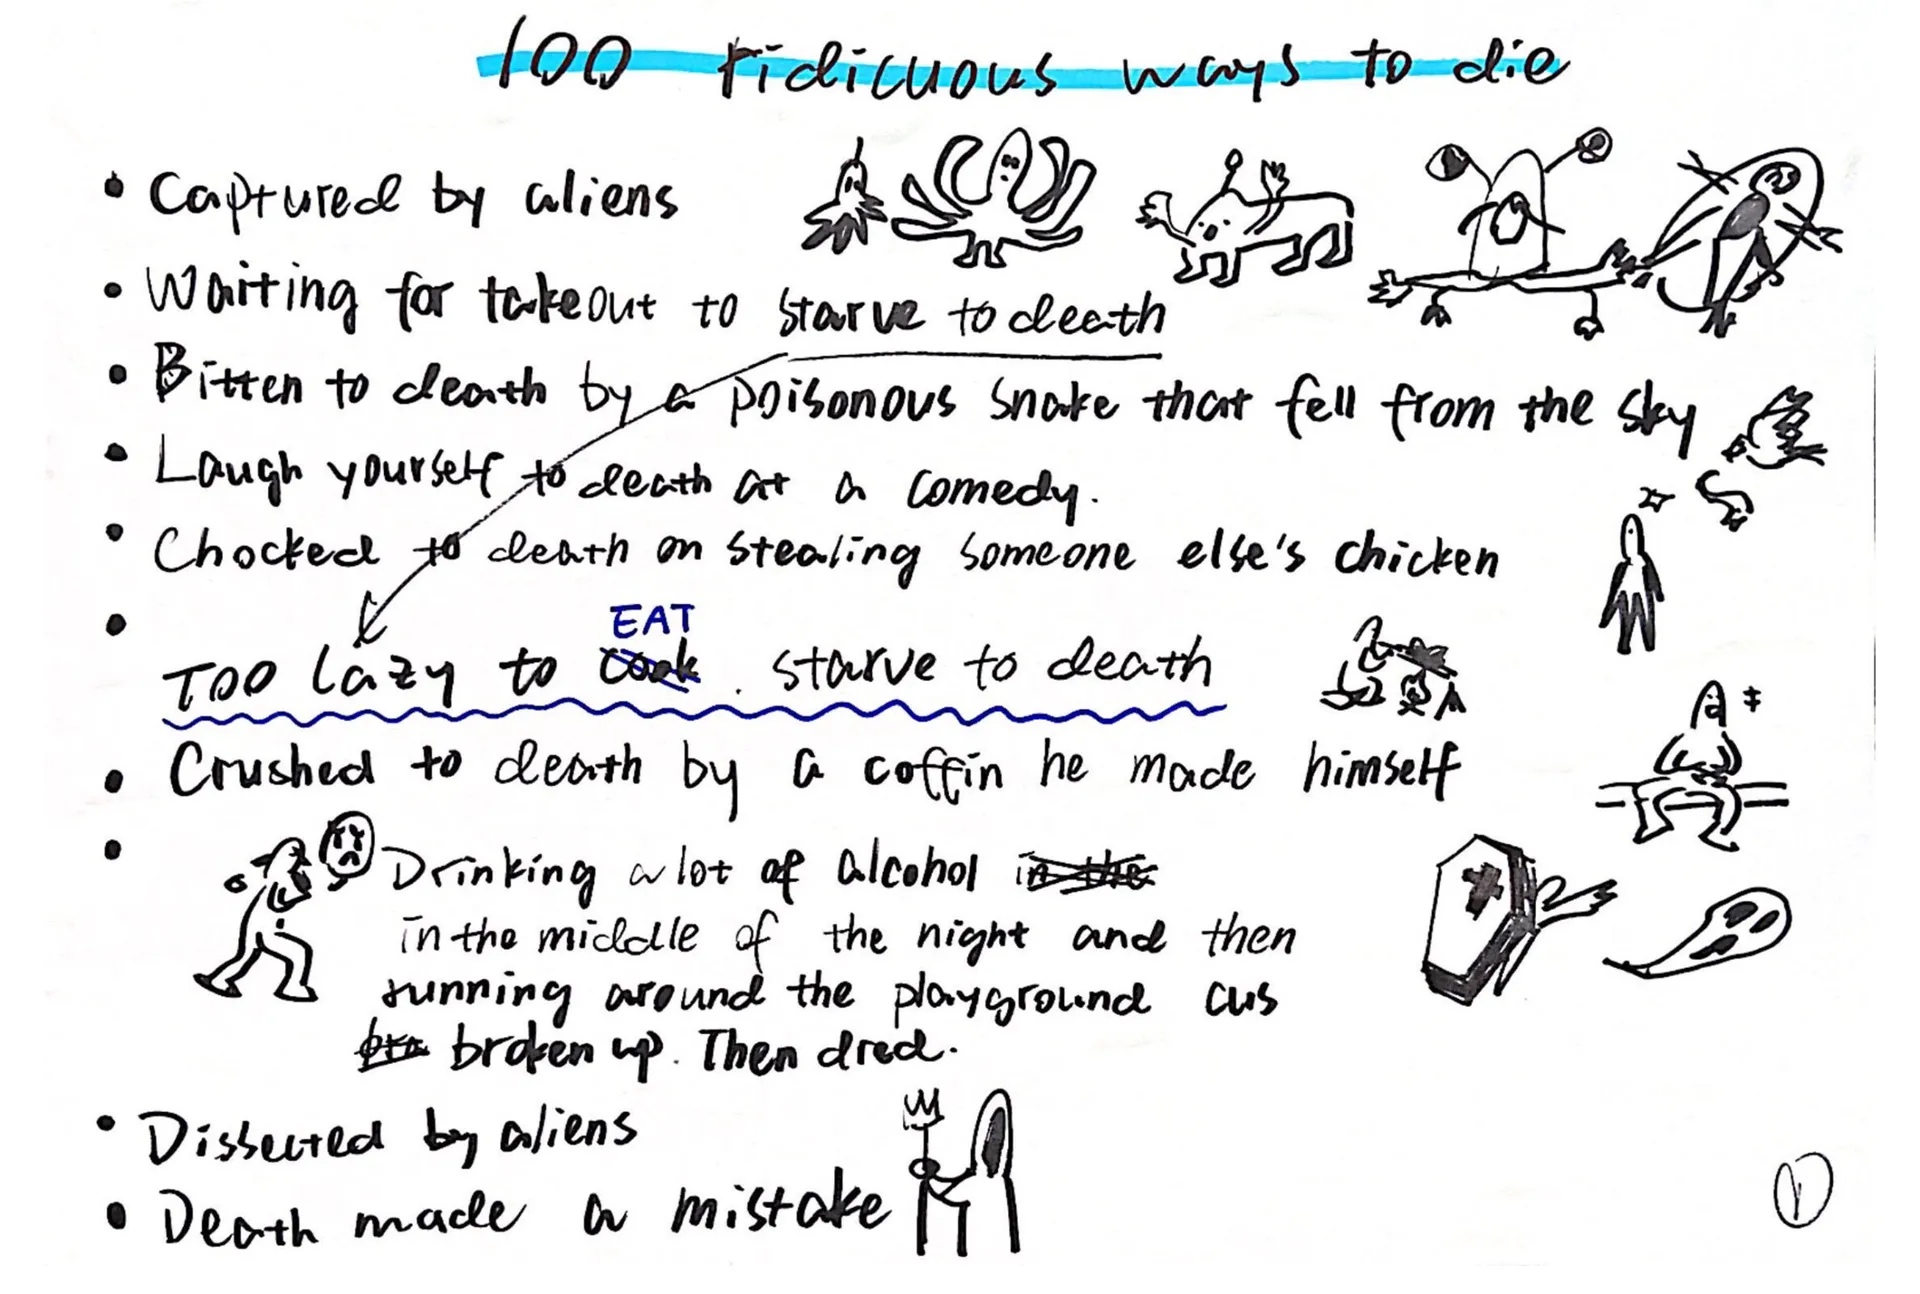 100 ridicuous ways to die
• Captured by aliens
• Waiting for takeout to starve to death
• Bitten to death by a poisonous snake that fell from the sky
• Laugh yourself to death at a comedy.
• Chocked to death on stealing someone else's chicken
EAT
• Too lazy to cook. starve to death
• Crushed to death by a coffin he made himself
• Drinking a lot of alcohol in the
in the middle of the night and then
running around the playground cus
bro broken up. Then died.
• Dissected by aliens
• Death made a mistake
1